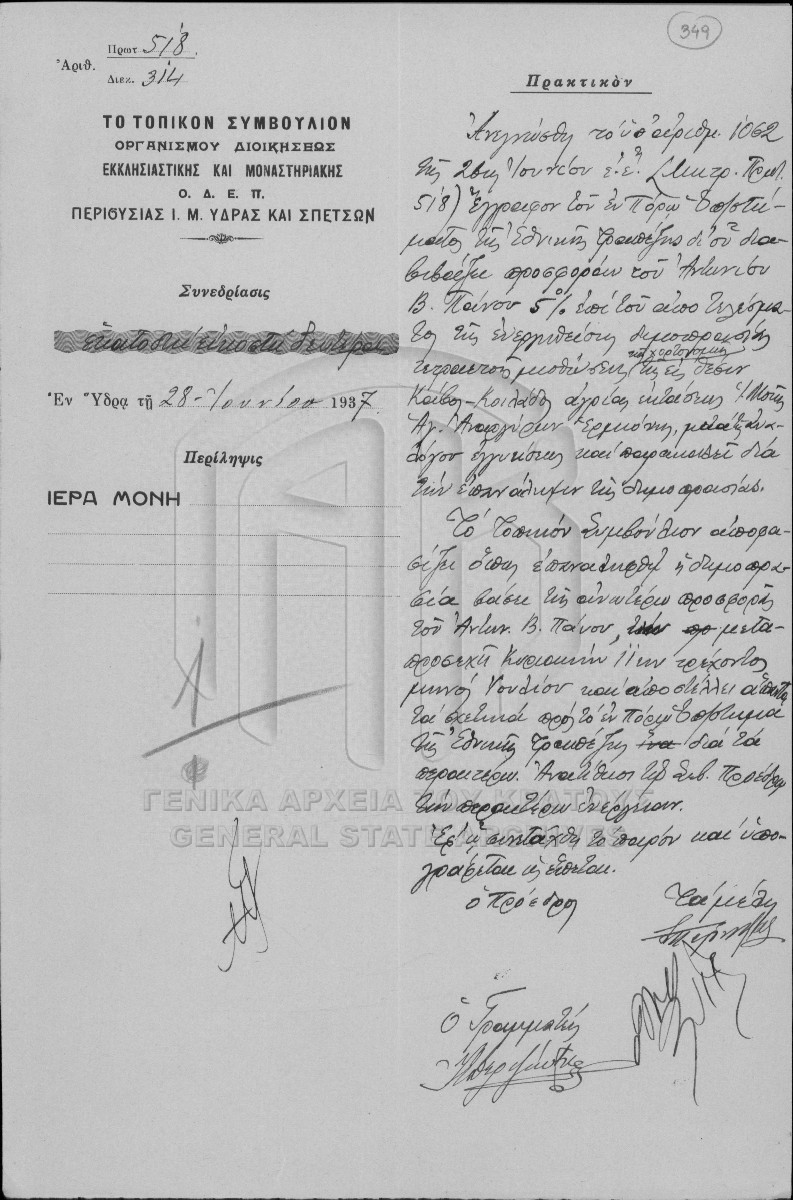 349
Ἀριθ. Πρωτ 518.
Διεκ. 314
ΤΟ ΤΟΠΙΚΟΝ ΣΥΜΒΟΥΛΙΟΝ
ΟΡΓΑΝΙΣΜΟΥ ΔΙΟΙΚΗΣΕΩΣ
ΕΚΚΛΗΣΙΑΣΤΙΚΗΣ ΚΑΙ ΜΟΝΑΣΤΗΡΙΑΚΗΣ
Ο. Δ. Ε. Π.
ΠΕΡΙΟΥΣΙΑΣ Ι. Μ. ΥΔΡΑΣ ΚΑΙ ΣΠΕΤΣΩΝ
Συνεδρίασις
ἑκατοστὴ εἰκοστὴ δευτέρα
Ἐν Ὕδρᾳ τῇ 28 Ἰουνίου 1937
Περίληψις
ΙΕΡΑ ΜΟΝΗ
Πρακτικὸν
Ἀνεγνώσθη τὸ ὑπ' ἀριθμ. 1062
τῆς 26ης Ἰουνίου ἐ.ἔ. (Μητρ. Πρωτ.
518) ἔγγραφον τοῦ ἐν Πόρῳ Ὑποκατ/
ματος τῆς Ἐθνικῆς Τραπέζης δι' οὗ δια-
βιβάζει προσφορὰν τοῦ Ἀντωνίου
Β. Πάνου 5% ἐπὶ τοῦ ἀποτελέσμα-
τος τῆς ἐνεργηθείσης δημοπρασίας
τετραετοῦς μισθώσεως τῆς χορτονομῆς τῆς εἰς θέσιν
Κάβος-Κοιλάδος ἀγρίας ἐκτάσεως Ἱ. Μονῆς
Ἁγ. Ἀναργύρων Ἑρμιόνης, μετὰ τῆς ἀνα-
λόγου ἐγγυήσεως καὶ παρακαλεῖ διὰ
τὴν ἐπανάληψιν τῆς δημοπρασίας.
Τὸ Τοπικὸν Συμβούλιον ἀποφα-
σίζει ὅπως ἐπαναληφθῇ ἡ δημοπρα-
σία βάσει τῆς ἀνωτέρω προσφορᾶς
τοῦ Ἀντων. Β. Πάνου, τὴν μετα-
προσεχῆ Κυριακὴν 11ην τρέχοντος
μηνὸς Ἰουλίου καὶ ἀποστέλλει ἅπαντα
τὰ σχετικὰ πρὸς τὸ ἐν Πόρῳ Ὑποκ/τημα
τῆς Ἐθνικῆς Τραπέζης διὰ τὰ
περαιτέρω. Ἀνατίθησι τῷ Σεβ. Προέδρῳ
τὴν περαιτέρω ἐνέργειαν.
Ἐφ' ᾧ συνετάχθη τὸ παρὸν καὶ ὑπο-
γράφεται ὡς ἕπεται.
Ὁ Πρόεδρος Τὰ μέλη
Ὁ Γραμματεὺς
ΓΕΝΙΚΑ ΑΡΧΕΙΑ ΤΟΥ ΚΡΑΤΟΥΣ
GENERAL STATE ARCHIVES